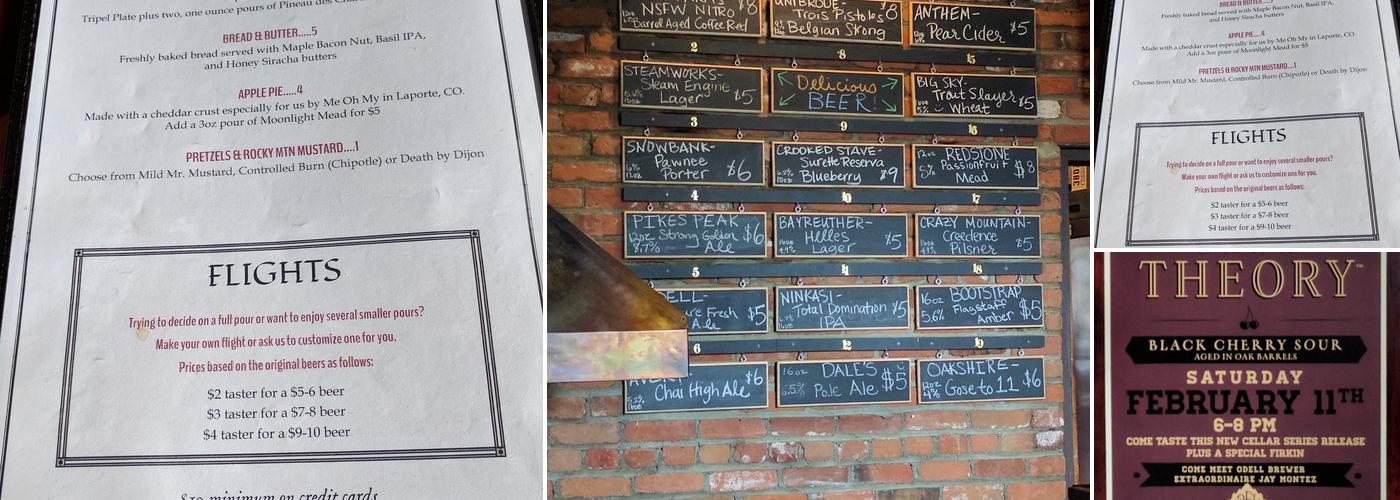 Tripel Plate plus two, one ounce pours of Pineau des
BREAD & BUTTER.....5
Freshly baked bread served with Maple Bacon Nut, Basil IPA,
and Honey Siracha butters
APPLE PIE.....4
Made with a cheddar crust especially for us by Me Oh My in Laporte, CO.
Add a 3oz pour of Moonlight Mead for $5
PRETZELS & ROCKY MTN MUSTARD....1
Choose from Mild Mr. Mustard, Controlled Burn (Chipotle) or Death by Dijon
FLIGHTS
Trying to decide on a full pour or want to enjoy several smaller pours?
Make your own flight or ask us to customize one for you.
Prices based on the original beers as follows:
$2 taster for a $5-6 beer
$3 taster for a $7-8 beer
$4 taster for a $9-10 beer
$10 minimum on credit cards
NSFW NITRO $8
Barrel Aged Coffee Red
2
STEAMWORKS-
Steam Engine
Lager $5
3
SNOWBANK-
Pawnee
Porter $6
6%
12oz
4
PIKES PEAK
12oz Strong Golden $6
8.7% Ale
5
ELL-
re Fresh $5
Ale
6
Chai High Ale $6
UNIBROUE-
Trois Pistoles 8
Belgian Strong
8
Delicious
BEER!
9
CROOKED STAVE-
Surette Reserva
Blueberry $9
10
BAYREUTHER-
Helles
Lager $5
11
NINKASI-
Total Domination $5
IPA
12
16oz DALE'S
6.5% Pale Ale $5
ANTHEM-
Pear Cider $5
15
BIG SKY-
Trout Slayer $5
Wheat
16
12oz REDSTONE
Passionfruit $8
Mead
17
CRAZY MOUNTAIN-
Creedence
Pilsner $5
18
16oz BOOTSTRAP
5.6% Flagstaff $5
Amber
19
OAKSHIRE-
12oz
4% Gose to 11 $6
BREAD & BUTTER
Freshly baked bread served with Maple Bacon Nut, Basil IPA,
and Honey Siracha butters
APPLE PIE.....4
Made with a cheddar crust especially for us by Me Oh My in Laporte, CO.
Add a 3oz pour of Moonlight Mead for $5
PRETZELS & ROCKY MTN MUSTARD....1
Choose from Mild Mr. Mustard, Controlled Burn (Chipotle) or Death by Dijon
FLIGHTS
Trying to decide on a full pour or want to enjoy several smaller pours?
Make your own flight or ask us to customize one for you.
Prices based on the original beers as follows:
$2 taster for a $5-6 beer
$3 taster for a $7-8 beer
$4 taster for a $9-10 beer
THEORY™
BLACK CHERRY SOUR
AGED IN OAK BARRELS
SATURDAY
FEBRUARY 11TH
6-8 PM
COME TASTE THIS NEW CELLAR SERIES RELEASE
PLUS A SPECIAL FIRKIN
COME MEET ODELL BREWER
EXTRAORDINAIRE JAY MONTEZ